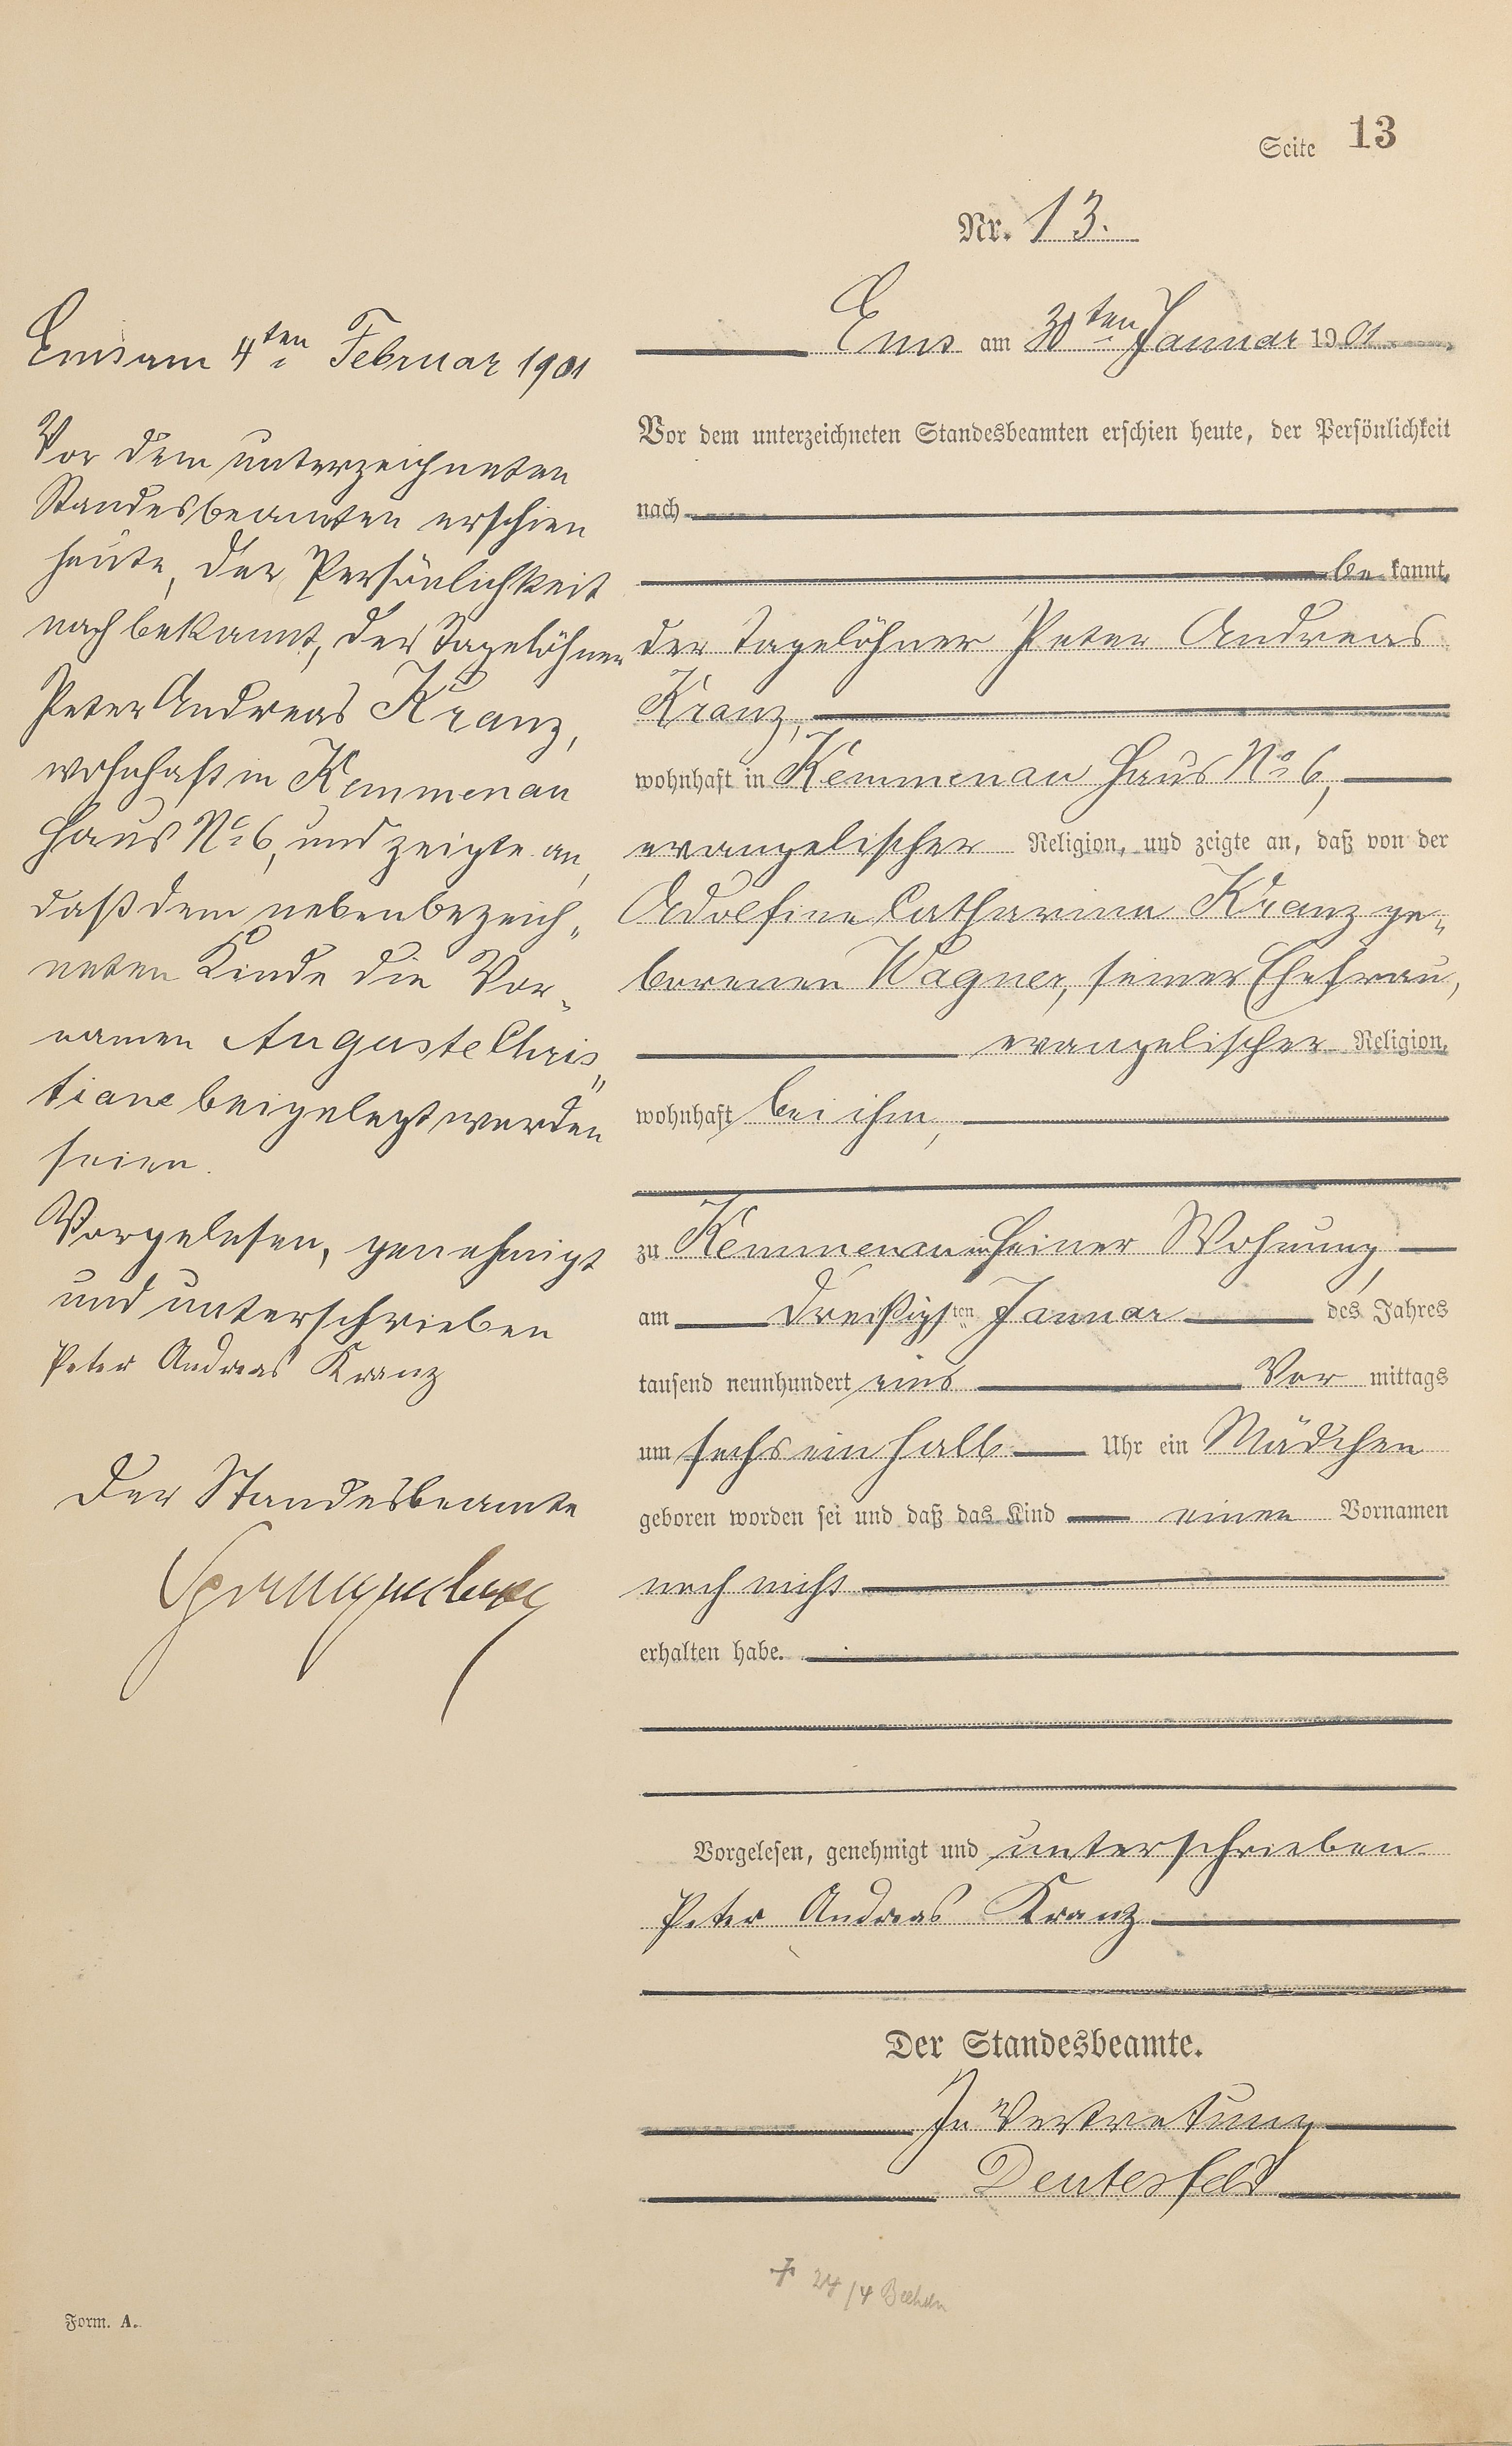 Seite 13
Nr. 13.
Ems am 30ten Januar 1901
Vor dem unterzeichneten Standesbeamten erschien heute, der Persönlichkeit
nach
be kannt,
der Tagelöhner Peter Andreas
Kranz,
wohnhaft in Kemmenau Haus No 6,
evangelischer Religion, und zeigte an, daß von der
Adolfine Catharina Kranz ge„
borenen Wagner, seiner Ehefrau,
evangelischer Religion,
wohnhaft bei ihm,
zu Kemmenau in seiner Wohnung,
am Dreißigsten Januar des Jahres
tausend neunhundert eins Vor mittags
um sechs ein halb Uhr ein Mädchen
geboren worden sei und daß das Kind einen Vornamen
noch nicht
erhalten habe.
Vorgelesen, genehmigt und unterschrieben
Peter Andreas Kranz
Der Standesbeamte.
In Vertretung
Deutesfeld
+ 24/4
Ems am 4ten Februar 1901
Vor dem unterzeichneten
Standesbeamten erschien
heute, der Persönlichkeit
nach bekannt, der Tagelöhner
Peter Andreas Kranz,
wohnhaft in Kemmenau
Haus No 6, und zeigte an,
daß dem nebenbezeich„
neten Kinde die Vor„
namen Auguste Chris„
tiane beigelegt worden
seien.
Vorgelesen, genehmigt
und unterschrieben
Peter Andreas Kranz
Der Standesbeamte
Form. A.